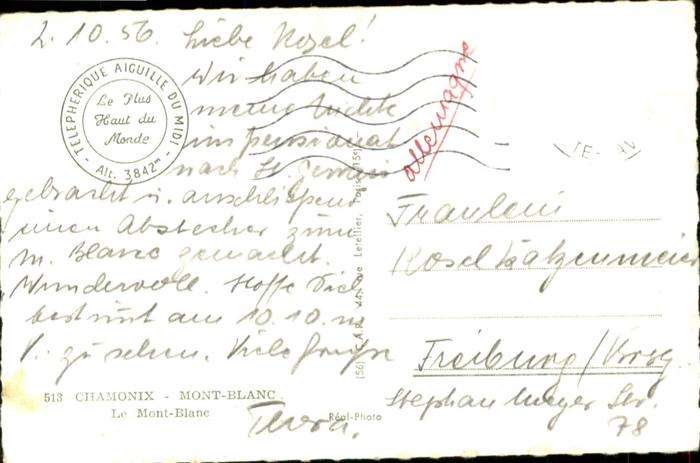 2.10.56. Liebe Rosel!
Wir haben
meine Nichte
im Pensionat
nach St.
gebracht u. anschließend
einen Abstecher zum
M. Blanc gemacht.
Wundervoll. Hoffe Dich
bestimmt am 10.10. in
V. zu sehen. Viele Grüße
TELEPHERIQUE AIGUILLE DU MIDI
Le Plus
Haut du
Monde
Alt. 3842m
513 CHAMONIX - MONT-BLANC
Le Mont-Blanc
Réal-Photo
Allemagne
Fräulein
Rosel Katzenmeier
Freiburg/Brsg.
Stephan Meyer Str.
78